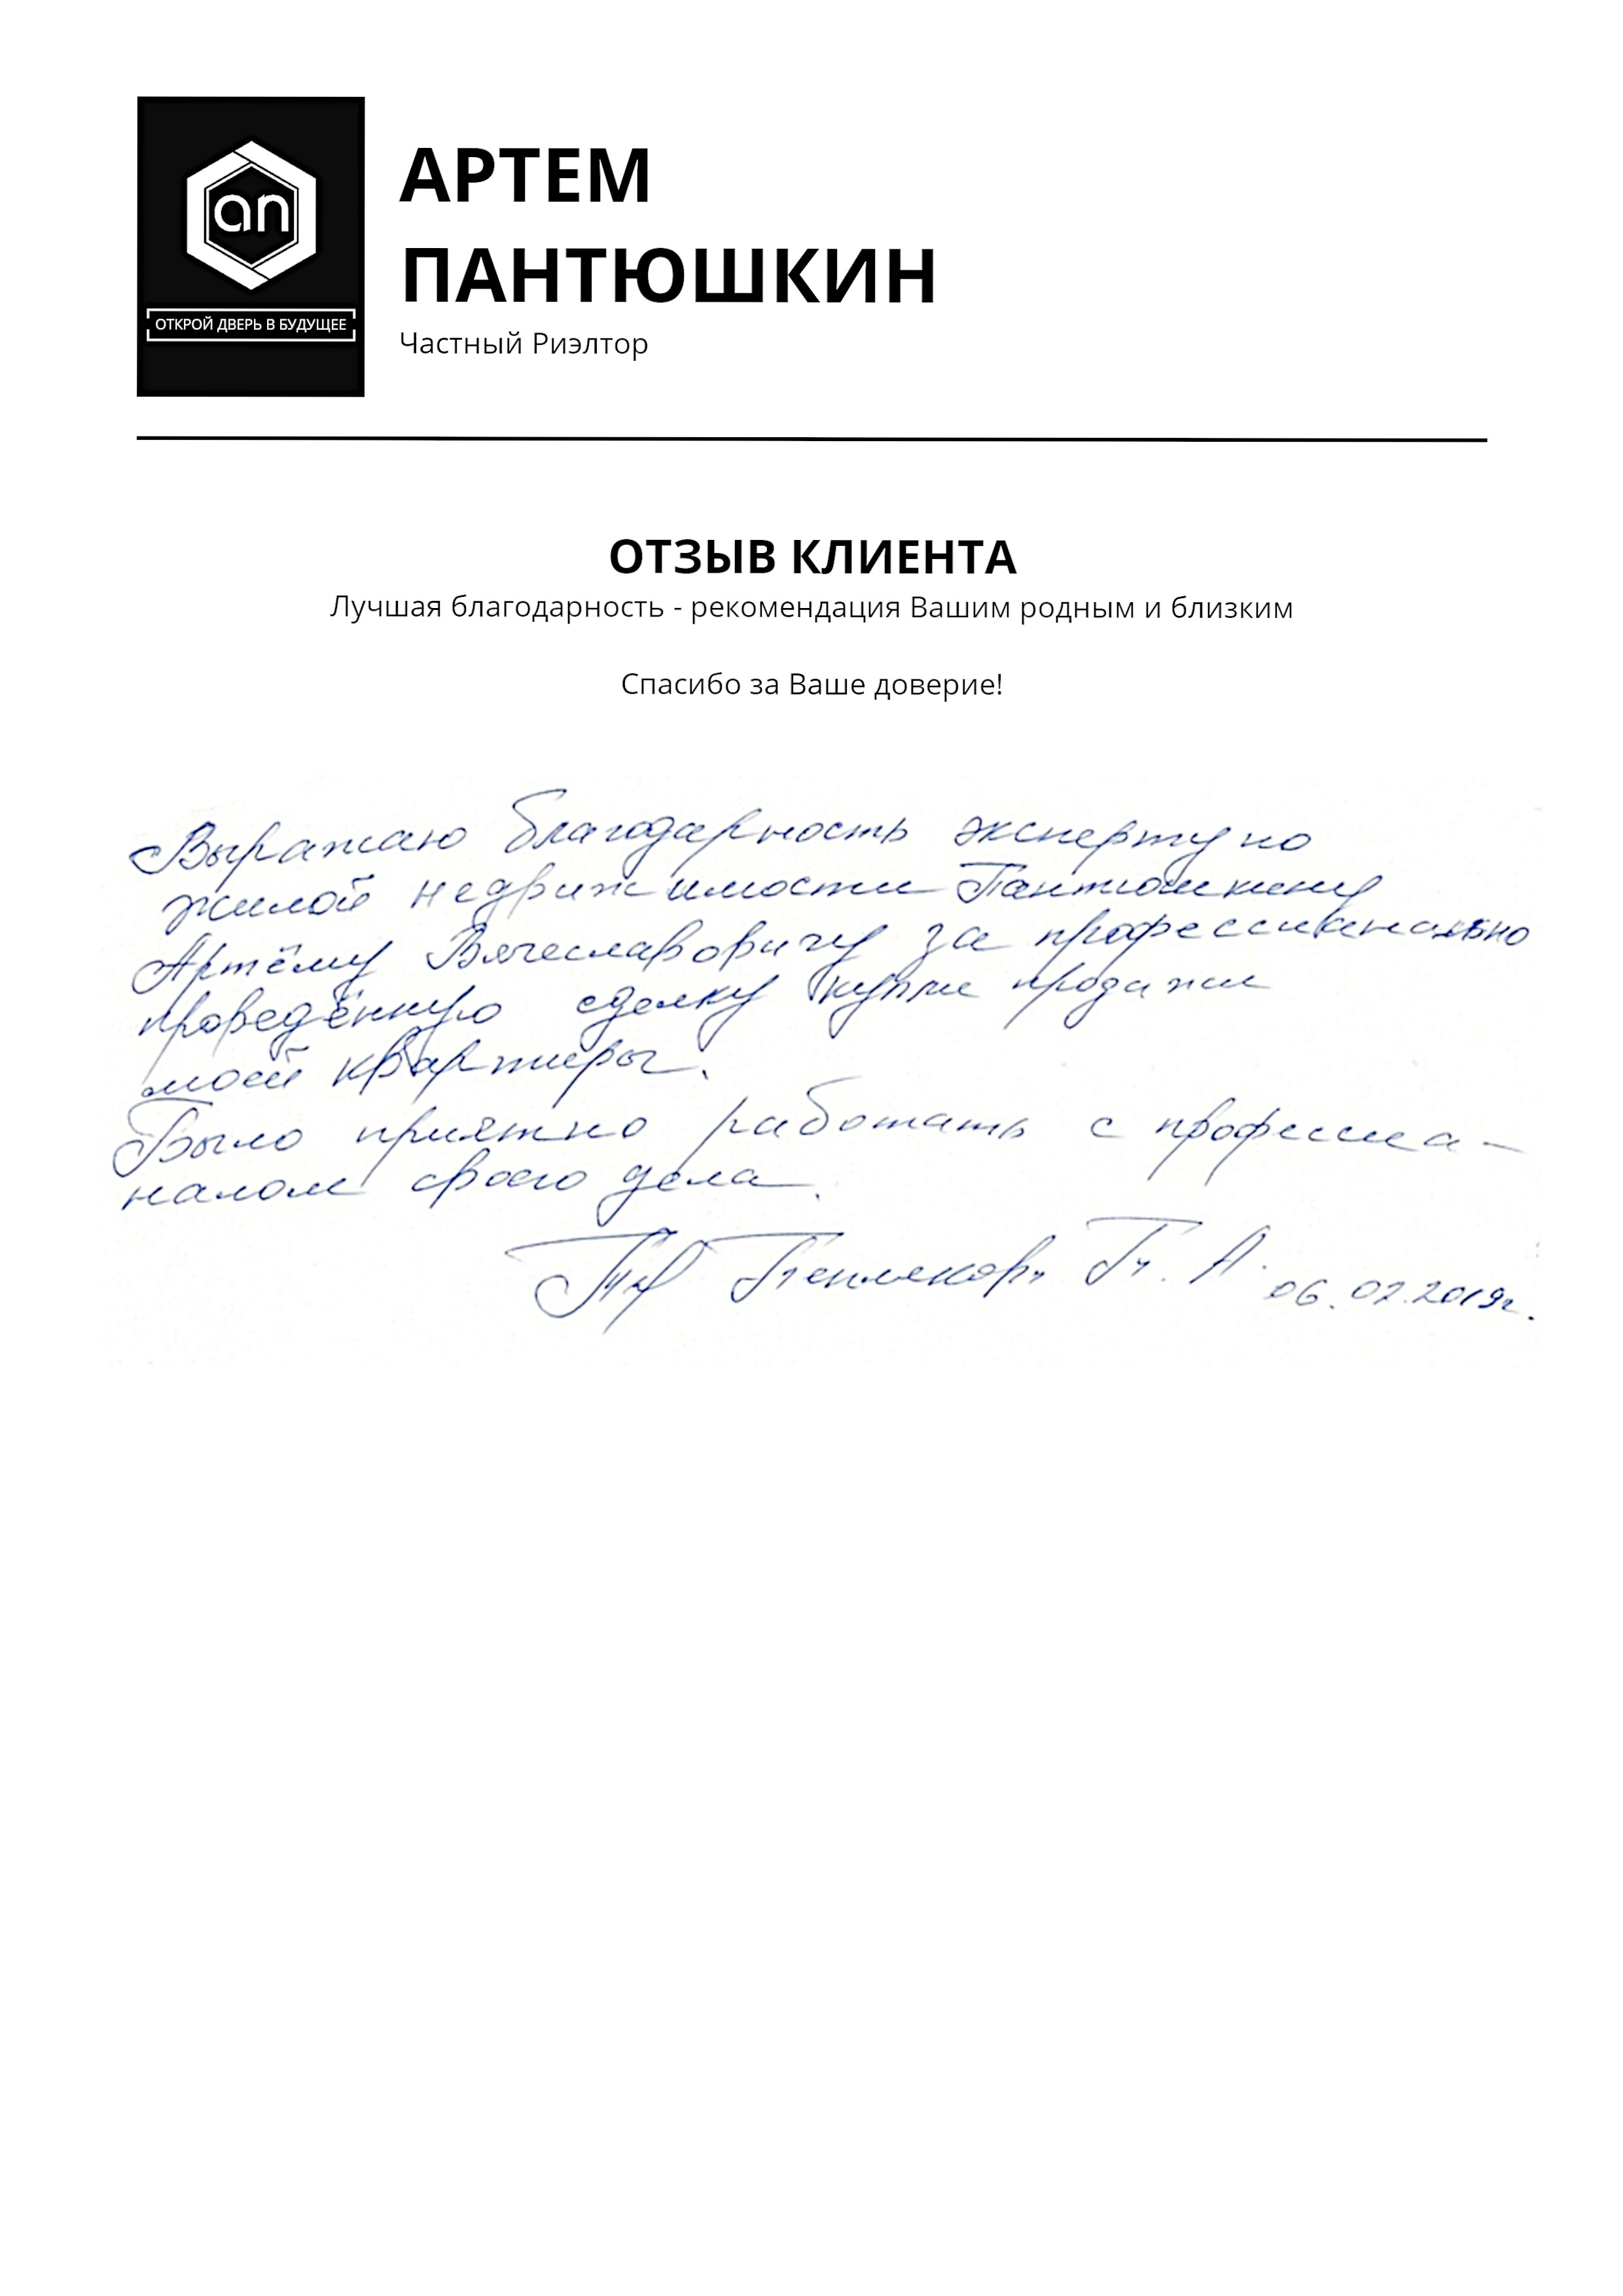 an
ОТКРОЙ ДВЕРЬ В БУДУЩЕЕ
АРТЕМ
ПАНТЮШКИН
Частный Риэлтор
ОТЗЫВ КЛИЕНТА
Лучшая благодарность - рекомендация Вашим родным и близким
Спасибо за Ваше доверие!
Выражаю благодарность эксперту по
жилой недвижимости Пантюшкину
Артёму Вячеславовичу за профессианально
проведённую сделку купли продажи
моей квартиры.
Было приятно работать с профессиа-
налом своего дела.
Г. А. 06.02.2019г.